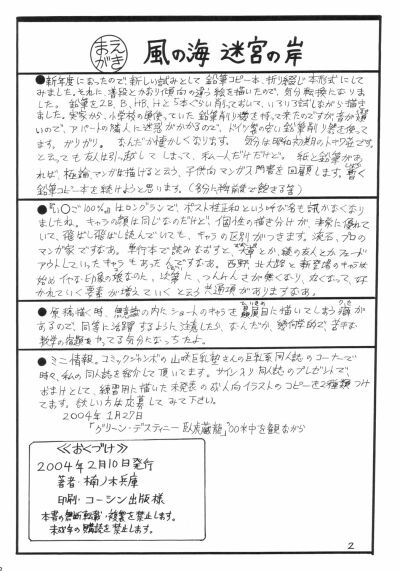 まえがき
風の海 迷宮の岸
●新年度になったので、新しい試みとして鉛筆コピー本、折り綴じ本形式にして
みました。それに、普段とかなり傾向の違う絵を描いたので、気分転換になりま
した。鉛筆を2B、B、HB、Hと5本ぐらい削っておいて、いろいろ試しながら描き
ました。実家から、小学校の頃使っていた鉛筆削り機を持って来たのですが音が
ので、アパートの隣人に迷惑がかかるので、ドイツ製の安い鉛筆削り機を使って
ます。ガリガリ。なんだか懐かしくなります。気分は昭和初期のトキワ荘です。
と云っても友人は引っ越してしまって、私一人だけだけど。紙と鉛筆があ
れば、極論マンガは描けると云う、子供向マンガ入門書を回顧します。暫く
鉛筆コピー本を続けようと思います。
●「いちご100%」はロングランで、ポスト桂正和という呼び名も
ましたね。キャラの顔は同じなのだけど、個性の描き分けが非常に優れて
いて、飛ばし飛ばし読んでいても、キャラの区別がつきます。流石、プロの
マンガ家ですなあ。単行本で読みなおすと
アウトしていったキャラもあった 西野、北大路と新登場のキャラは
始めイヤな印象の
かれていく要素が増えていくと云う共通項がありますなあ。
●原稿描く時、無意識の内にショートのキャラを贔屓目に描いてしまう癖が
あるので、同等に活躍するように注意したら、なんだか、幾何学的で
数学の宿題をやってる気分になっちったよ。
●ミニ情報。コミックジャンボの山咲巨乳塾さんの巨乳系同人誌のコーナーで
時々、私の同人誌を紹介して頂いてます。サイン入り同人誌のプレゼントで
おまけとして、練習用に描いた未発表の美人向イラストのコピーを2種類つけ
てます。欲しい方は応募してみて下さい。
2004年1月27日
「グリーン・デスティニー 臥虎蔵龍」 を観ながら
≪おくづけ≫
2004年2月10日発行
著者・楠ノ木兵庫
印刷・コーシン出版様
本書の無断転載・複製を禁止します。
未成年の購読を禁止します。
2